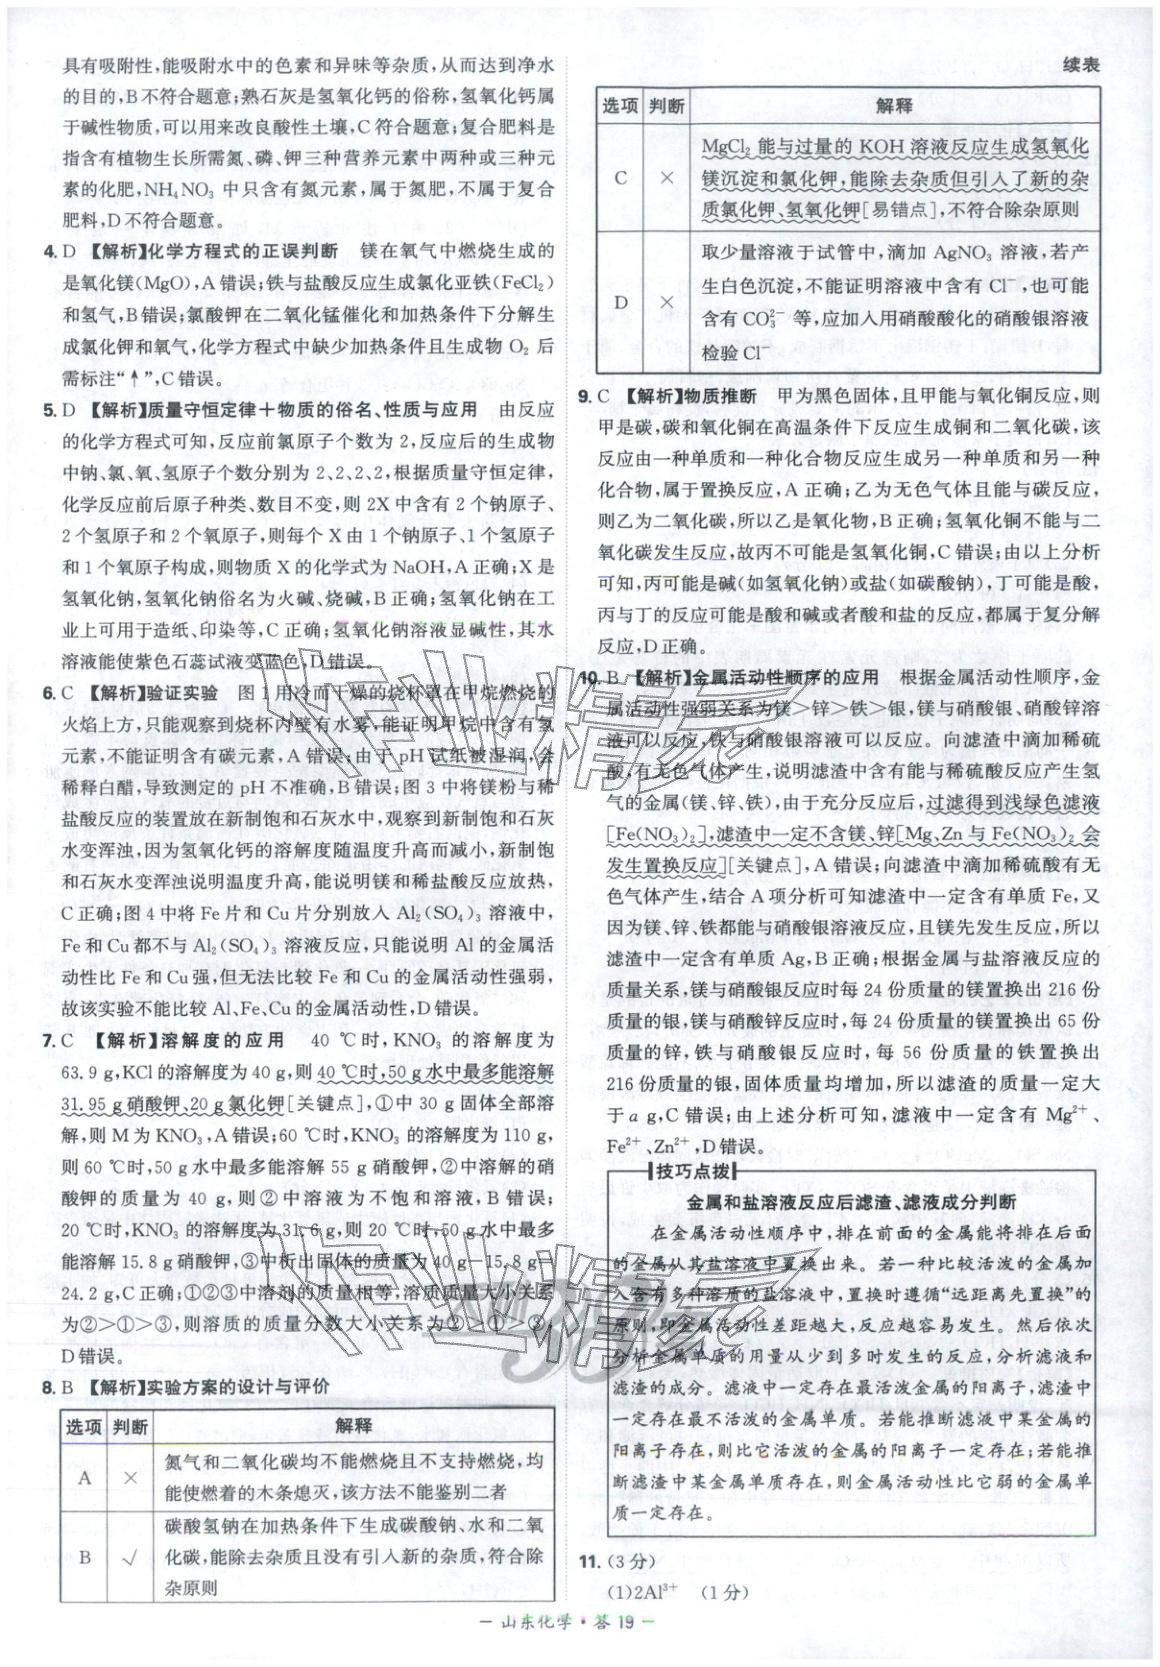 具有吸附性,能吸附水中的色素和异味等杂质,从而达到净水
的目的,B不符合题意;熟石灰是氢氧化钙的俗称,氢氧化钙属
于碱性物质,可以用来改良酸性土壤,C符合题意;复合肥料是
指含有植物生长所需氮、磷、钾三种营养元素中两种或三种元
素的化肥,NH₄NO₃ 中只含有氮元素,属于氮肥,不属于复合
肥料,D不符合题意。
4. D 【解析】化学方程式的正误判断 镁在氧气中燃烧生成的
是氧化镁(MgO),A错误;铁与盐酸反应生成氯化亚铁(FeCl₂)
和氢气,B错误;氯酸钾在二氧化锰催化和加热条件下分解生
成氯化钾和氧气,化学方程式中缺少加热条件且生成物 O₂ 后
需标注“↑”,C错误。
5. D 【解析】质量守恒定律+物质的俗名、性质与应用 由反应
的化学方程式可知,反应前氯原子个数为2,反应后的生成物
中钠、氯、氧、氢原子个数分别为2、2、2、2,根据质量守恒定律,
化学反应前后原子种类、数目不变,则2X中含有2个钠原子、
2个氢原子和2个氧原子,则每个X由1个钠原子、1个氢原子
和1个氧原子构成,则物质X的化学式为NaOH,A正确;X是
氢氧化钠,氢氧化钠俗名为火碱、烧碱,B正确;氢氧化钠在工
业上可用于造纸、印染等,C正确;氢氧化钠溶液显碱性,其水
溶液能使紫色石蕊试液变蓝色,D错误。
6. C 【解析】验证实验 图1用冷而干燥的烧杯罩在甲烷燃烧的
火焰上方,只能观察到烧杯内壁有水雾,能证明甲烷中含有氢
元素,不能证明含有碳元素,A错误;由于pH试纸被湿润,会
稀释白醋,导致测定的pH不准确,B错误;图3中将镁粉与稀
盐酸反应的装置放在新制饱和石灰水中,观察到新制饱和石灰
水变浑浊,因为氢氧化钙的溶解度随温度升高而减小,新制饱
和石灰水变浑浊说明温度升高,能说明镁和稀盐酸反应放热,
C正确;图4中将Fe片和Cu片分别放入Al₂(SO₄)₃溶液中,
Fe和Cu都不与Al₂(SO₄)₃溶液反应,只能说明Al的金属活
动性比Fe和Cu强,但无法比较Fe和Cu的金属活动性强弱,
故该实验不能比较Al、Fe、Cu的金属活动性,D错误。
7. C 【解析】溶解度的应用 40 ℃时,KNO₃ 的溶解度为
63.9 g,KCl的溶解度为40 g,则40 ℃时,50 g水中最多能溶解
31.95 g硝酸钾、20 g氯化钾[关键点],①中30 g固体全部溶
解,则M为KNO₃,A错误;60 ℃时,KNO₃ 的溶解度为110 g,
则60 ℃时,50 g水中最多能溶解55 g硝酸钾,②中溶解的硝
酸钾的质量为40 g,则②中溶液为不饱和溶液,B错误;
20 ℃时,KNO₃的溶解度为31.6 g,则20 ℃时,50 g水中最多
能溶解15.8 g硝酸钾,③中析出固体的质量为40 g－15.8 g＝
24.2 g,C正确;①②③中溶剂的质量相等,溶质质量大小关系
为②>①>③,则溶质的质量分数大小关系为②>①>③,
D错误。
8. B 【解析】实验方案的设计与评价
选项 判断 解释
A × 氮气和二氧化碳均不能燃烧且不支持燃烧,均
能使燃着的木条熄灭,该方法不能鉴别二者
B √ 碳酸氢钠在加热条件下生成碳酸钠、水和二氧
化碳,能除去杂质且没有引入新的杂质,符合除
杂原则
续表
选项 判断 解释
C × MgCl₂ 能与过量的 KOH 溶液反应生成氢氧化
镁沉淀和氯化钾,能除去杂质但引入了新的杂
质氯化钾、氢氧化钾[易错点],不符合除杂原则
D × 取少量溶液于试管中,滴加 AgNO₃ 溶液,若产
生白色沉淀,不能证明溶液中含有 Cl⁻,也可能
含有 CO₃²⁻ 等,应加入用硝酸酸化的硝酸银溶液
检验 Cl⁻
9. C 【解析】物质推断 甲为黑色固体,且甲能与氧化铜反应,则
甲是碳,碳和氧化铜在高温条件下反应生成铜和二氧化碳,该
反应由一种单质和一种化合物反应生成另一种单质和另一种
化合物,属于置换反应,A正确;乙为无色气体且能与碳反应,
则乙为二氧化碳,所以乙是氧化物,B正确;氢氧化铜不能与二
氧化碳发生反应,故丙不可能是氢氧化铜,C错误;由以上分析
可知,丙可能是碱(如氢氧化钠)或盐(如碳酸钠),丁可能是酸,
丙与丁的反应可能是酸和碱或者酸和盐的反应,都属于复分解
反应,D正确。
10. B 【解析】金属活动性顺序的应用 根据金属活动性顺序,金
属活动性强弱关系为镁>锌>铁>银,镁与硝酸银、硝酸锌溶
液可以反应,铁与硝酸银溶液可以反应。向滤渣中滴加稀硫
酸,有无色气体产生,说明滤渣中含有能与稀硫酸反应产生氢
气的金属(镁、锌、铁),由于充分反应后,过滤得到浅绿色滤液
[Fe(NO₃)₂],滤渣中一定不含镁、锌[Mg、Zn 与 Fe(NO₃)₂ 会
发生置换反应][关键点],A错误;向滤渣中滴加稀硫酸有无
色气体产生,结合A项分析可知滤渣中一定含有单质Fe,又
因为镁、锌、铁都能与硝酸银溶液反应,且镁先发生反应,所以
滤渣中一定含有单质Ag,B正确;根据金属与盐溶液反应的
质量关系,镁与硝酸银反应时每24份质量的镁置换出216份
质量的银,镁与硝酸锌反应时,每24份质量的镁置换出65份
质量的锌,铁与硝酸银反应时,每56份质量的铁置换出
216份质量的银,固体质量均增加,所以滤渣的质量一定大
于a g,C错误;由上述分析可知,滤液中一定含有 Mg²⁺、
Fe²⁺、Zn²⁺,D错误。
技巧点拨
金属和盐溶液反应后滤渣、滤液成分判断
在金属活动性顺序中,排在前面的金属能将排在后面
的金属从其盐溶液中置换出来。若一种比较活泼的金属加
入含有多种溶质的盐溶液中,置换时遵循“远距离先置换”的
原则,即金属活动性差距越大,反应越容易发生。然后依次
分析金属单质的用量从少到多时发生的反应,分析滤液和
滤渣的成分。滤液中一定存在最活泼金属的阳离子,滤渣中
一定存在最不活泼的金属单质。若能推断滤液中某金属的
阳离子存在,则比它活泼的金属的阳离子一定存在;若能推
断滤渣中某金属单质存在,则金属活动性比它弱的金属单
质一定存在。
11. (3分)
(1)2Al³⁺ (1分)
－山东化学·答19－
作业精灵
作业精灵